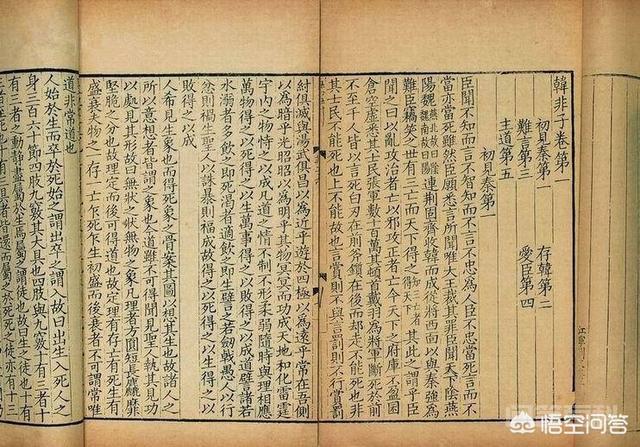 韓非子卷第一
初見秦第一 存韓第二
難言第三 愛臣第四
主道第五
初見秦第一
臣聞不知而言不智知而不言不忠為人臣不忠當死言而不
當亦當死雖然臣願悉言所聞唯大王裁其罪臣聞天下陰燕
陽魏燕北故曰陰魏南故曰陽連荊固齊收韓而成從將西面以與秦強為
難臣竊笑之世有三亡而天下得之知三亡者其此之謂乎臣
聞之曰以亂攻治者亡以邪攻正者亡今天下之府庫不盈囷
倉空虛悉其士民張軍數十百萬其頓首戴羽為將軍斷死於前
不至千人皆以言死白刃在前斧鑕在後而却走不能死也非
其士民不能死也上不能故也言賞則不與言罰則不行賞罰
紂俱滅與湯武俱昌以為近乎遊於四極以為遠乎常在吾側
以為暗乎其光昭昭以為明乎其物冥冥而功成天地和化雷霆
宇內之物恃之以成凡道之情不制不形柔弱隨時與理相應
萬物得之以死得之以生萬事得之以敗得之以成道譬諸若
水溺者多飲之即死渴者適飲之即生譬之若劍戟愚人以行
忿則禍生聖人以誅暴則福成故得之以死得之以生得之以
敗得之以成
人希見生象也而得死象之骨案其圖以想其生也故諸人之
所以意想者皆謂之象也今道雖不可得聞見聖人執其見功
以處見其形故曰無狀之狀無物之象凡理者方圓短長麤靡
堅脆之分也故理定而後可得道也故定理有存亡有死生有
盛衰夫物之一存一亡乍死乍生初盛而後衰者不可謂常唯
道非常道也
人始於生而卒於死始之謂出卒之謂入故曰出生入死人之
身三百六十節四肢九竅其大具也四肢與九竅十有三者十
有三者之動靜盡屬於生焉屬之謂徒也故曰生之徒也十有
悟空问答